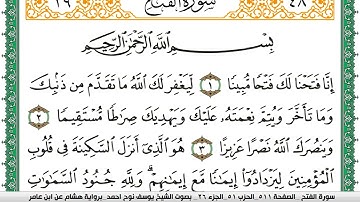 ٢٦ سُورَةُ الفَتْحِ ٤٨
بِسْمِ اللَّهِ الرَّحْمَٰنِ الرَّحِيمِ
إِنَّا فَتَحْنَا لَكَ فَتْحًا مُّبِينًا ١ لِّيَغْفِرَ لَكَ اللَّهُ مَا تَقَدَّمَ مِن ذَنبِكَ
وَمَا تَأَخَّرَ وَيُتِمَّ نِعْمَتَهُ عَلَيْكَ وَيَهْدِيَكَ صِرَاطًا مُّسْتَقِيمًا ٢
وَيَنصُرَكَ اللَّهُ نَصْرًا عَزِيزًا ٣ هُوَ الَّذِي أَنزَلَ السَّكِينَةَ فِي قُلُوبِ
الْمُؤْمِنِينَ لِيَزْدَادُوا إِيمَانًا مَّعَ إِيمَانِهِمْ وَلِلَّهِ جُنُودُ السَّمَاوَاتِ
سورة الفتح الصفحة ٥١١ الحزب ٥١ الجزء ٢٦ بصوت الشيخ يوسف نوح احمد برواية هشام عن ابن عامر